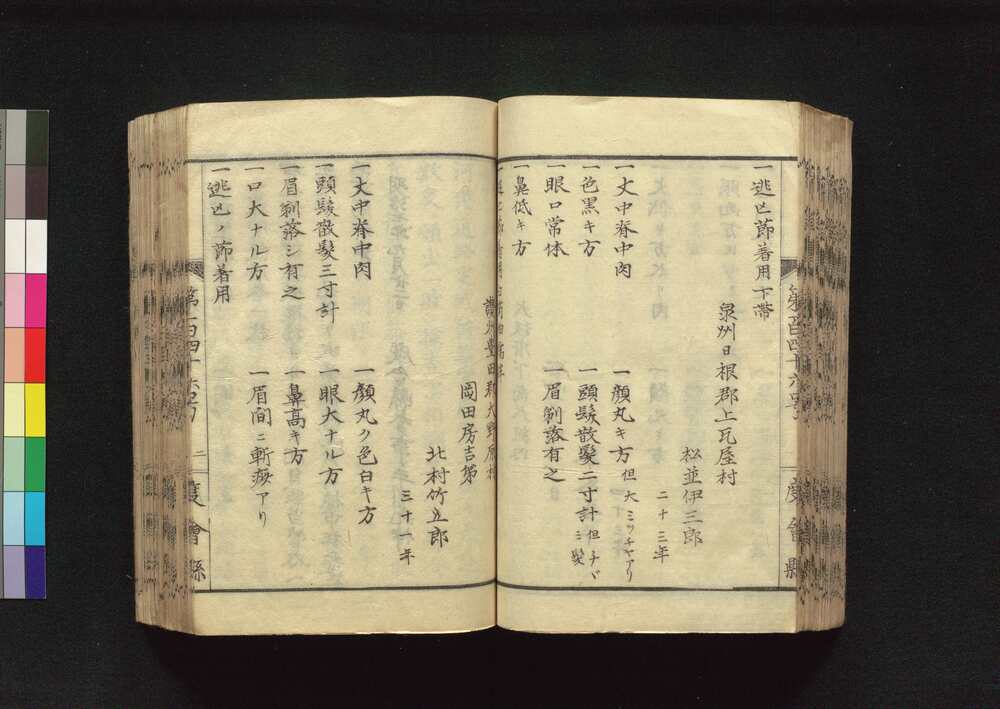 一逃亡節着用下帯
泉州日根郡上瓦屋村
松並伊三郎
二十三年
一丈中脊中肉
一顔丸キ方 但大ミッチャアリ
一色黒キ方
一頭髪散髪二寸計 但チヾミ髪
一眼口常体
一眉剃落有之
一鼻低キ方
讃州豊田郡大野原村
岡田房吉弟
北村竹五郎
三十一年
一丈中脊中肉
一顔丸ク色白キ方
一頭髪散髪三寸計
一眼大ナル方
一眉剃落シ有之
一鼻高キ方
一口大ナル方
一眉間ニ斬疵アリ
一逃亡ノ節着用
第百四十六号
二
度會縣
第百四十六号
度會縣